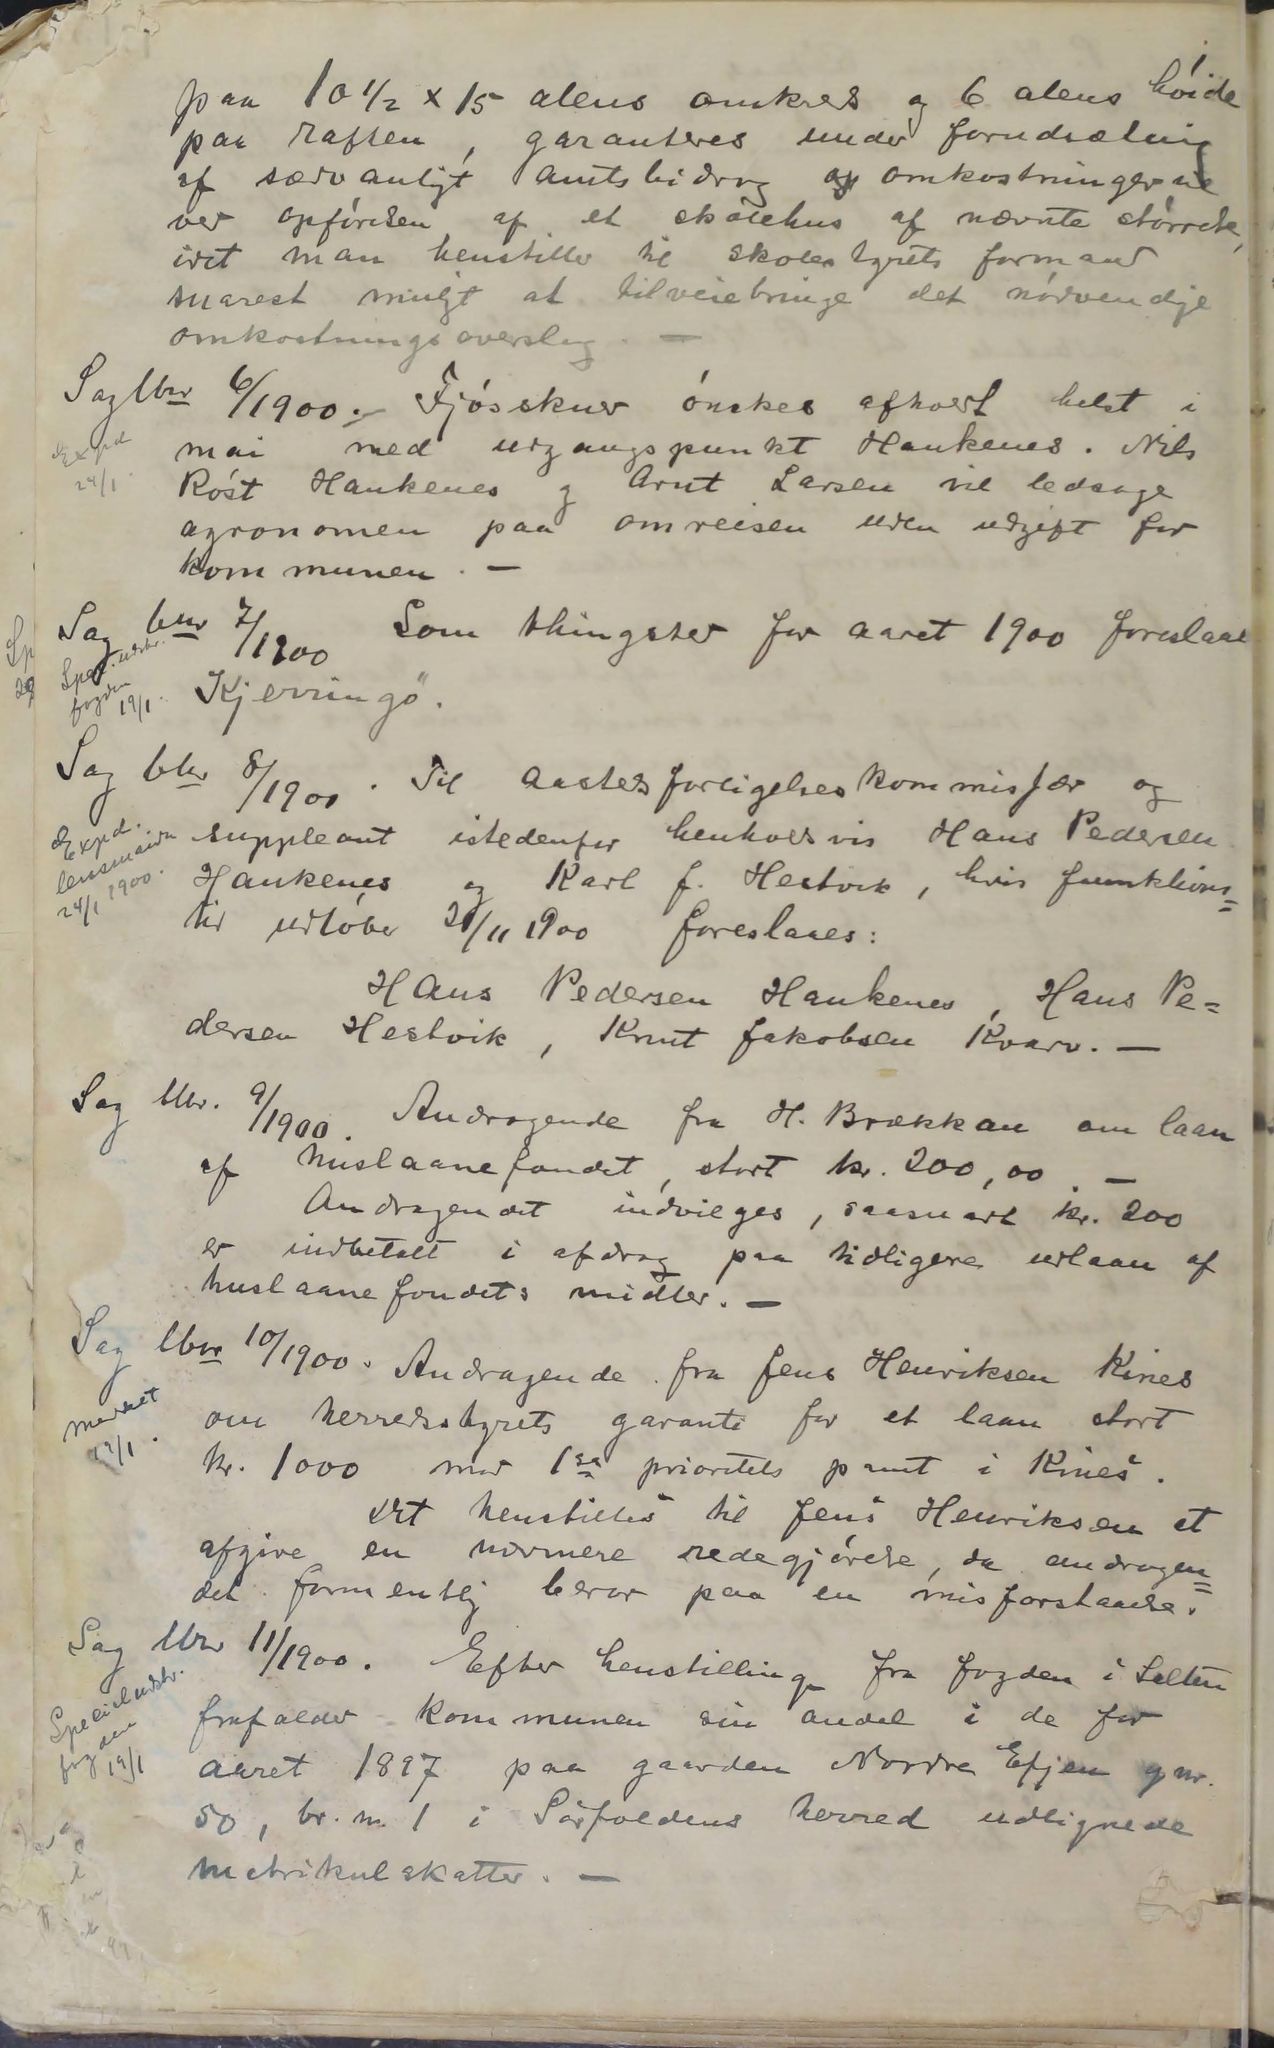 paa 10 1/2 x 15 alens omkres og 6 alens høide
paa raften, garanteres under forudsætnig
af sædvanligt amtsbidrag omkostningerne
ved opførelsen af et skolehus af nævnte størrelse,
idet man henstiller til skolestyrets formand
snarest muligt at tilveiebringe det nødvendige
omkostningsoverslag. —
Sag lbnr 6/1900. Fjøsskuer ønskes afholdt helst i
Expd
24/1.
mai med udgangspunkt Haukenes. Nils
Røst Haukenes og Arnt Larsen vil ledsage
agronomen paa omreisen uden udgift for
kommunen. —
Sag lbnr 7/1900 Som thingsted for aaret 1900 foreslaaes
Spec. udskr.
fogden
19/1.
Kjerringø.
Sag lbnr 8/1900. Til aastedsforligelseskommissær og
Expd.
lensmanden
24/1 1900.
suppleant istedenfor henholdsvis Hans Pedersen
Haukenes og Karl J. Hestvik, hvis funktions=
tid udløber 21/11 1900 foreslaaes:
Hans Pedersen Haukenes, Hans Pe=
dersen Hestvik, Knut Jakobsen Kvarv. —
Sag lbnr. 9/1900. Andragende fra H. Brækkan om laan
af huslaanefondet, stort kr. 200,00. —
Andragendet indvilges, saasnart kr. 200
er indbetalt i afdrag paa tidligere udlaan af
huslaanefondets midler. —
Sag lbnr 10/1900. Andragende fra Jens Henriksen Kines
merket
19/1.
om herredsstyrets garanti for et laan stort
kr. 1000 mod 1ste prioritets pant i Kines.
Det henstilles til Jens Henriksen at
afgive en nærmere redegjørelse, da andragen=
det formentlig beror paa en misforstaaelse.
Sag lbnr 11/1900. Efter henstilling fra fogden i Salten
Specieludskr.
fogden
19/1
frafalder kommunen sin andel i de for
aaret 1897 paa gaarden Nordre Efjen gnr.
50, br. n. 1 i Sørfoldens herred udlignede
matrikulskatter. —